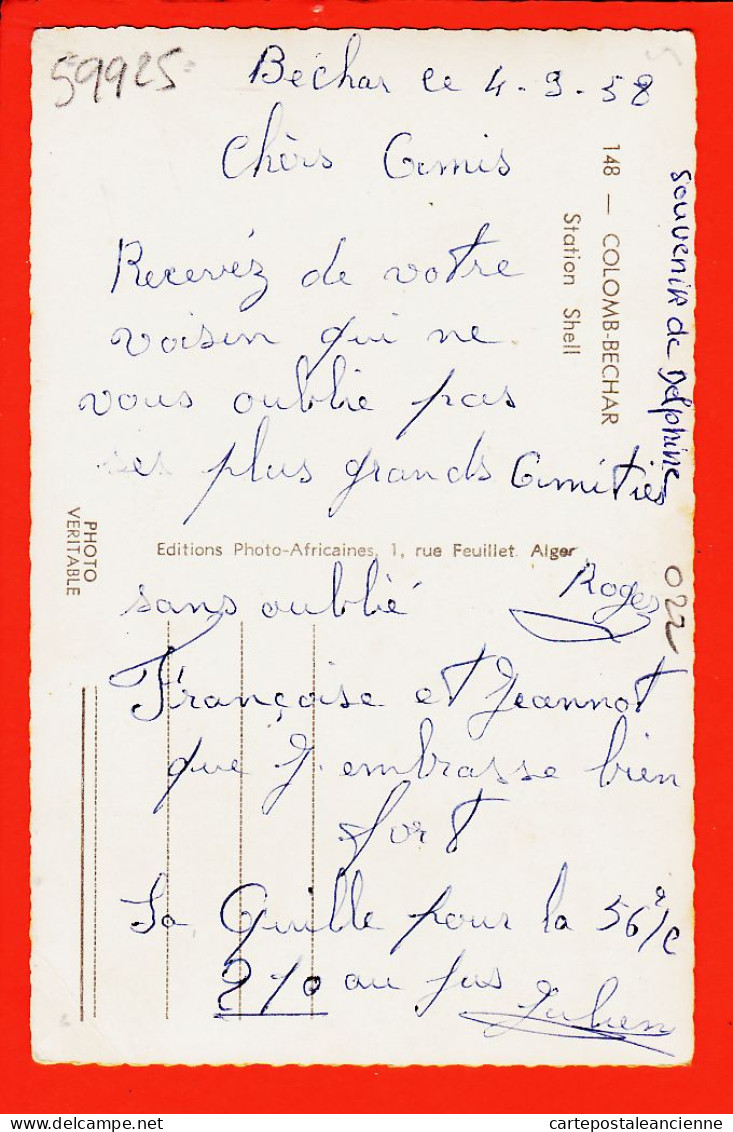 59925
Bechar ce 4-9-58
Chèrs Amis
Recevéz de votre
voisin qui ne
vous oublie pas
ses plus grands Amitiés
Roger
sans oublié
Françoise et Jeannot
que J. embrasse bien
fort
La Quille pour la 56 2/C
210 au jus
Julien
souvenir de Delphine
022
148 — COLOMB-BECHAR
Station Shell
Editions Photo-Africaines, 1, rue Feuillet Alger
PHOTO
VERITABLE
delcampe.net
cartepostaleancienne